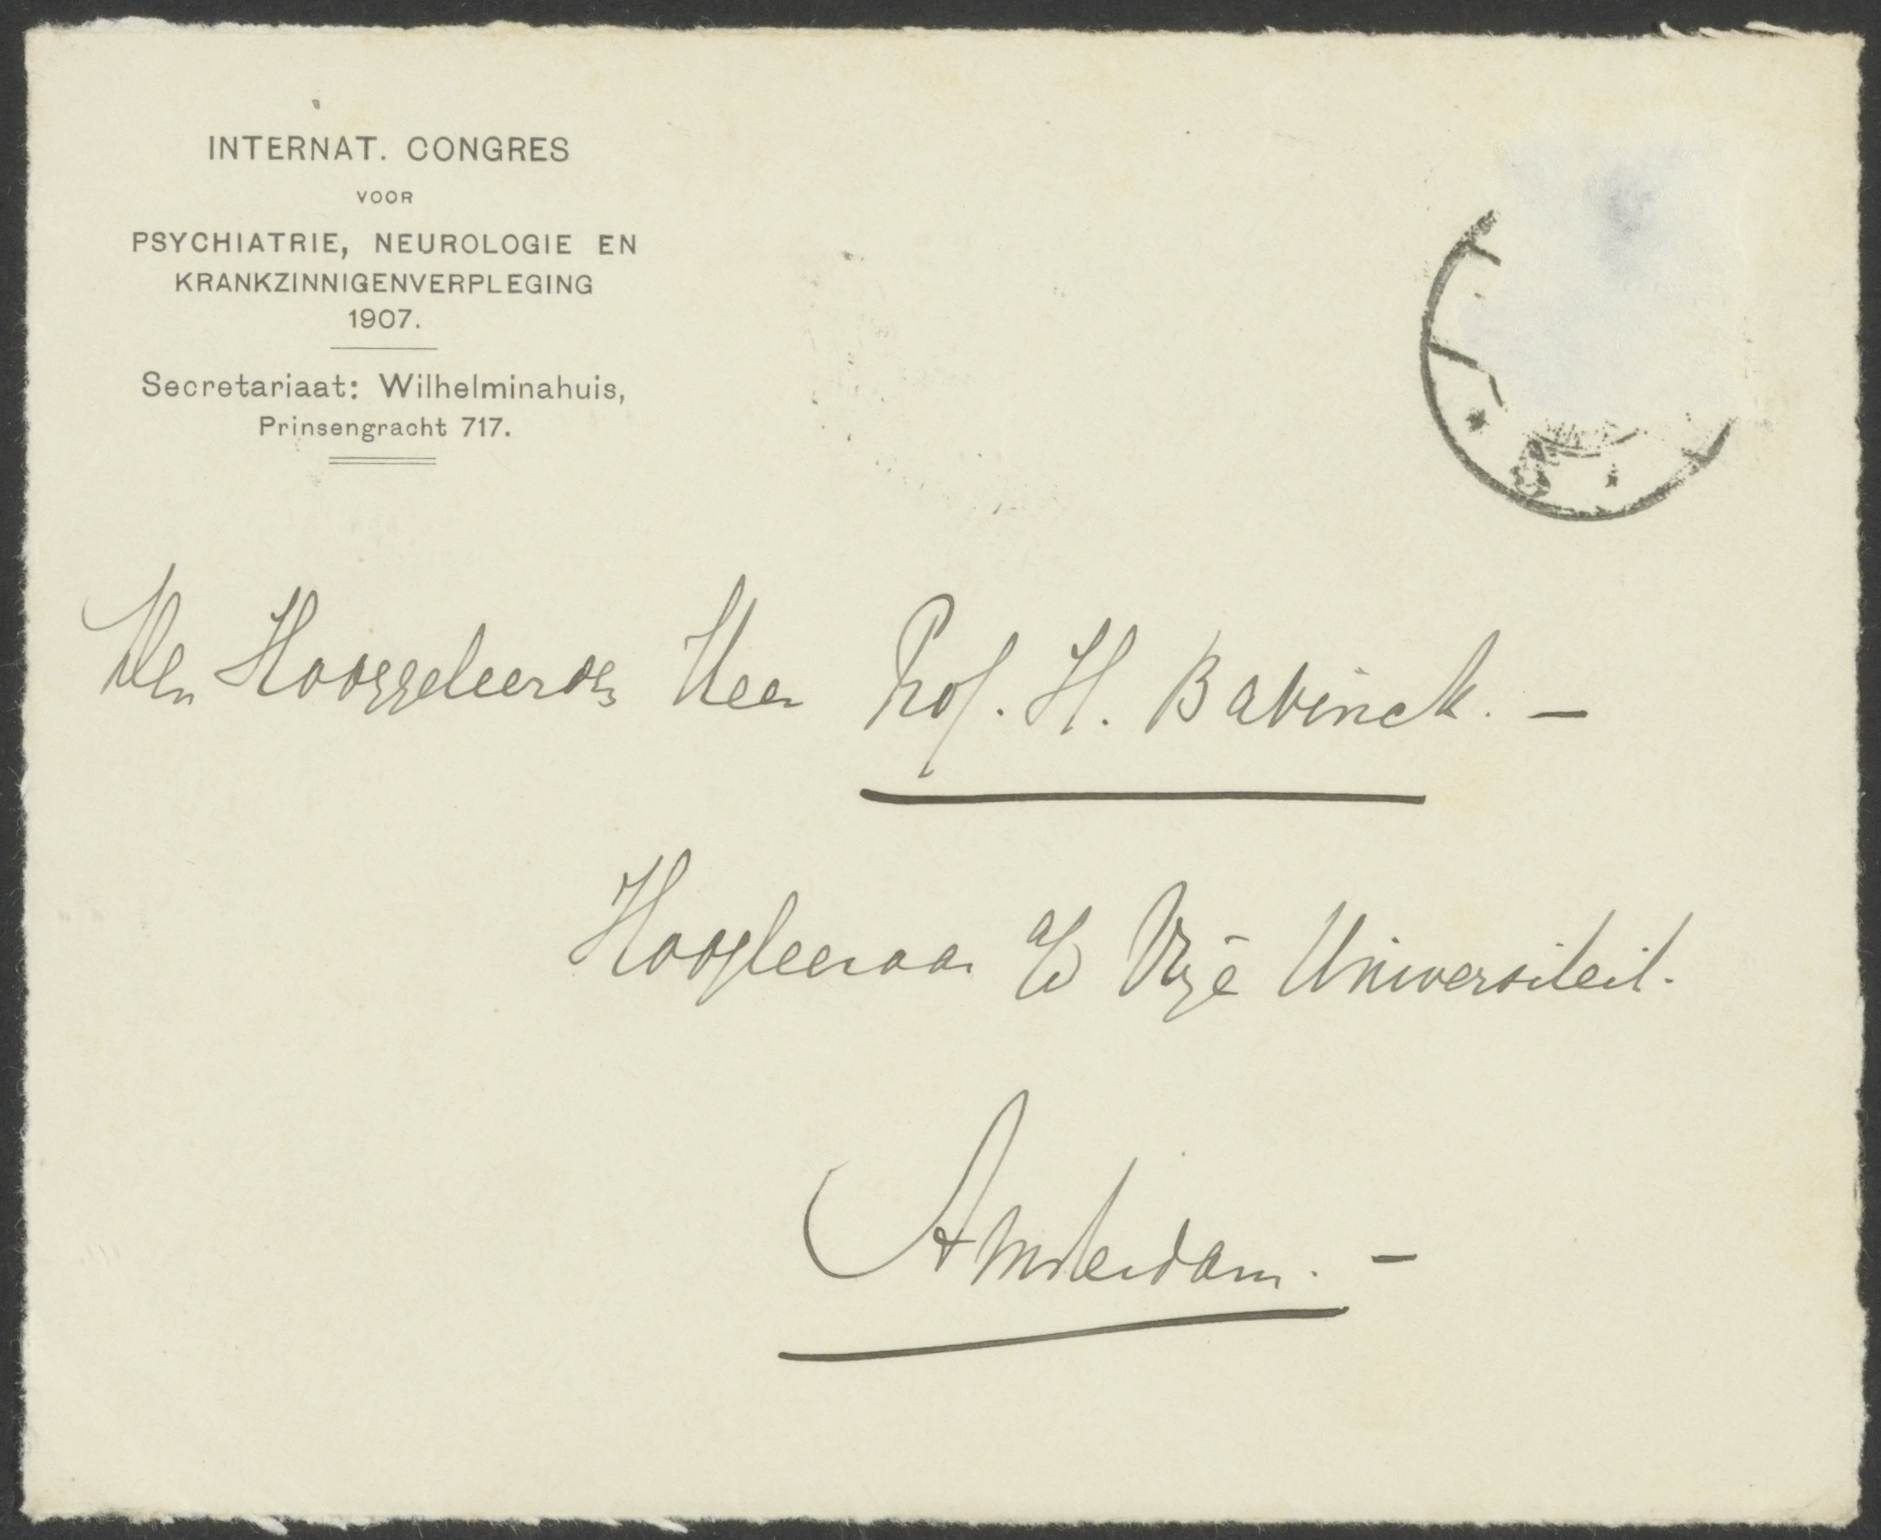 INTERNAT. CONGRES
VOOR
PSYCHIATRIE, NEUROLOGIE EN
KRANKZINNIGENVERPLEGING
1907.
Secretariaat: Wilhelminahuis,
Prinsengracht 717.
Den Hooggeleerden Heer Prof. H. Bavinck. —
Hoogleeraar a/d Vrije Universiteit.
Amsterdam. —